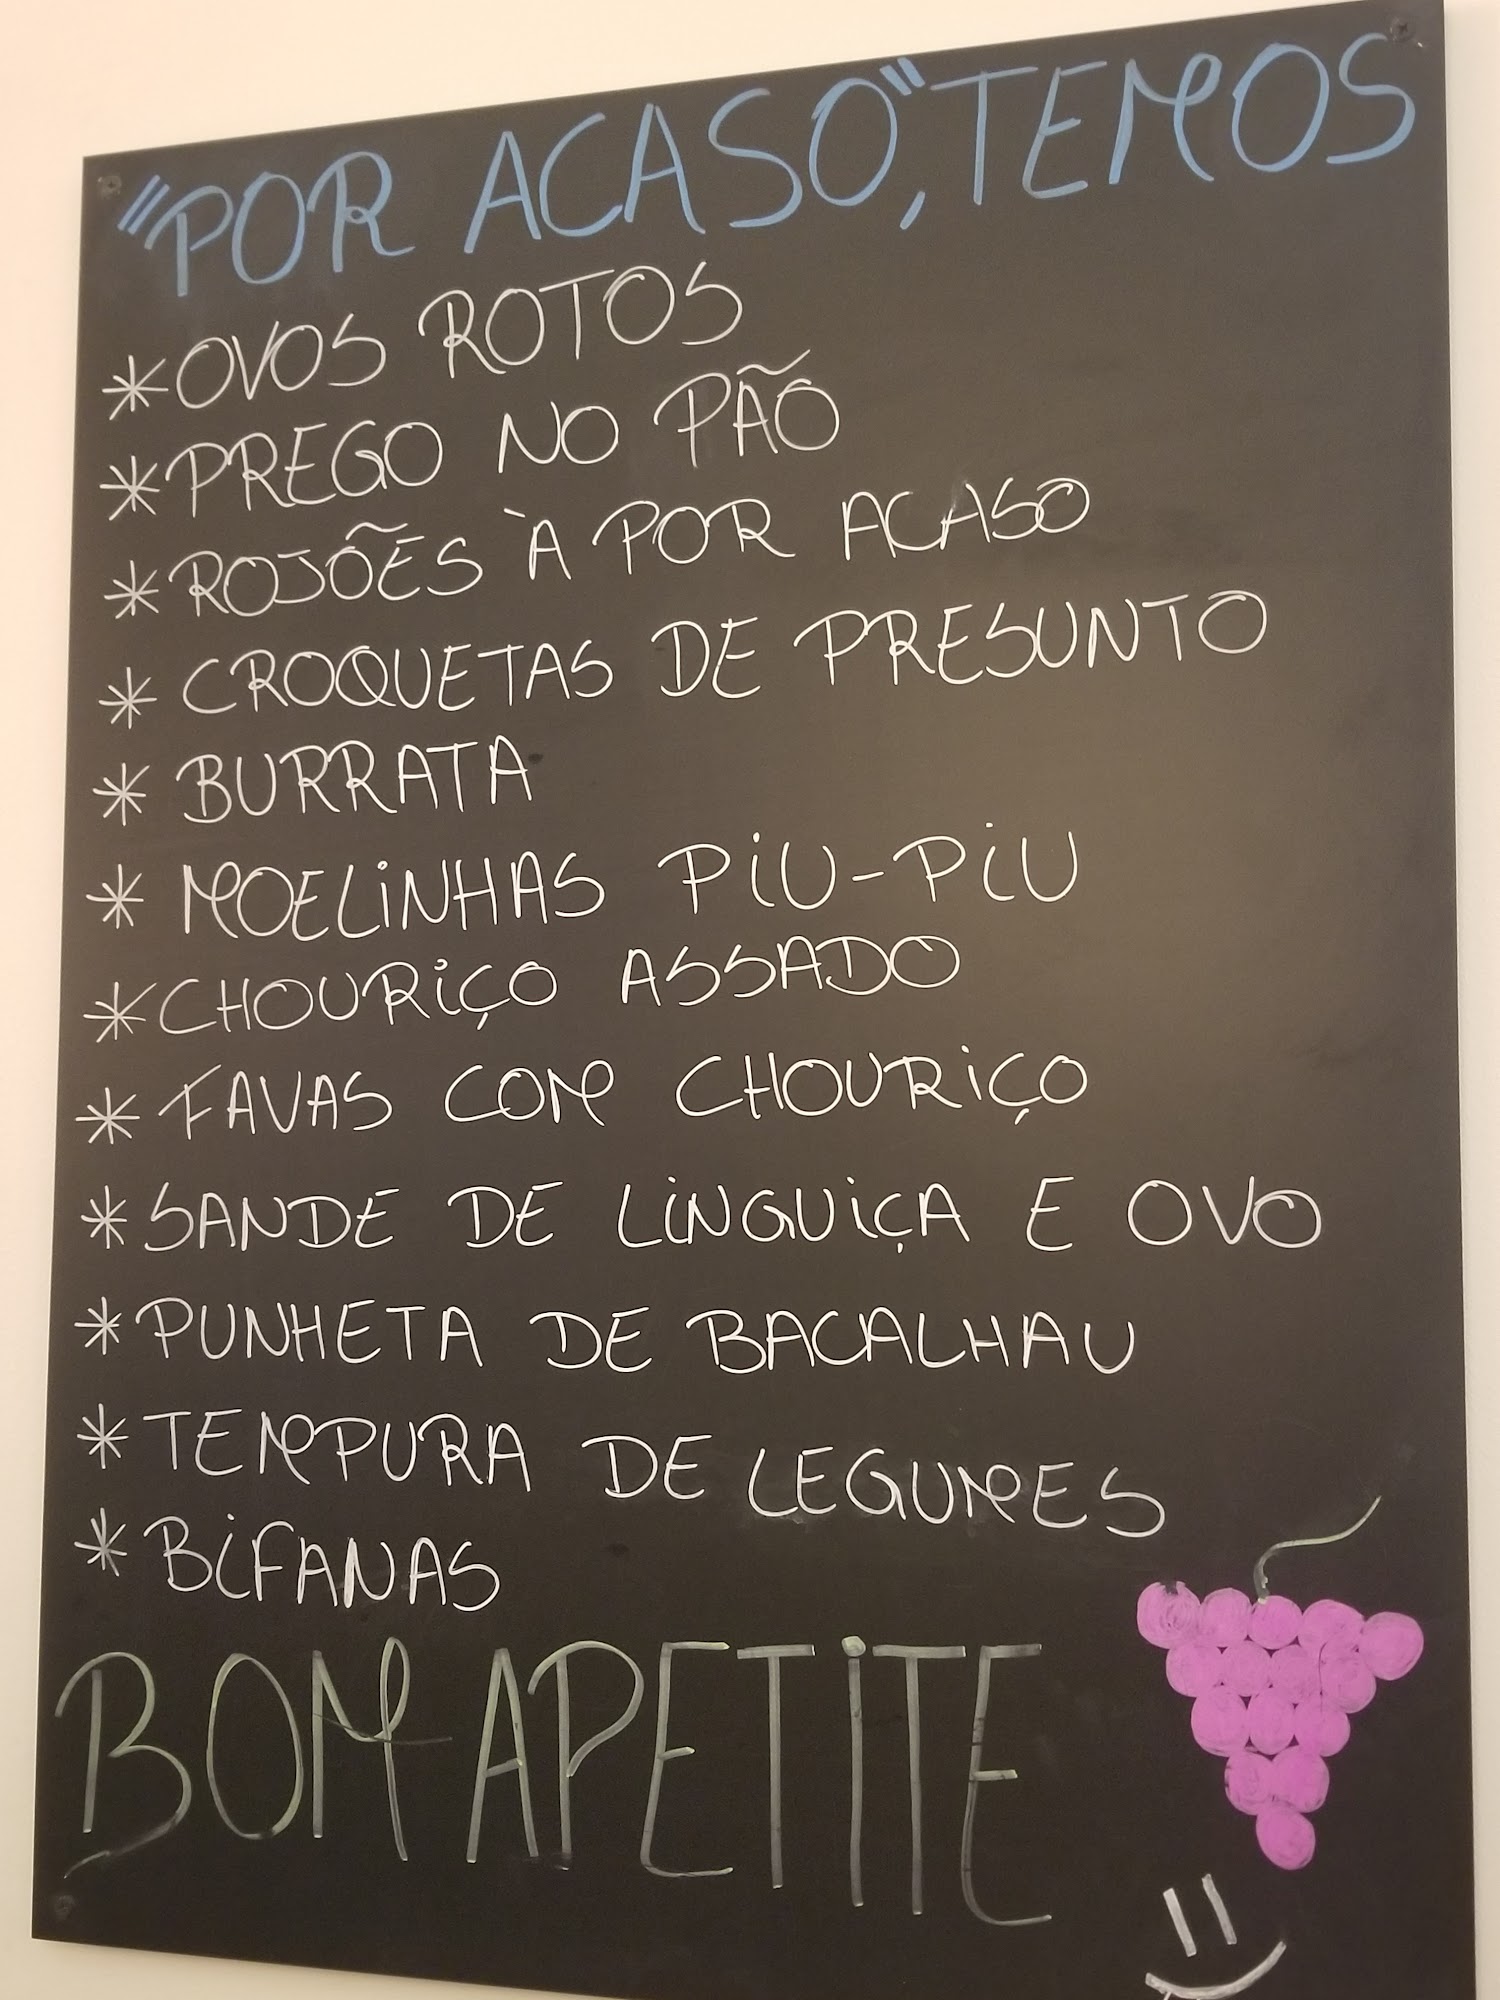 "POR ACASO", TEMOS
* OVOS ROTOS
* PREGO NO PÃO
* ROJÕES À POR ACASO
* CROQUETAS DE PRESUNTO
* BURRATA
* MOELINHAS PIU-PIU
* CHOURIÇO ASSADO
* FAVAS COM CHOURIÇO
* SANDE DE LINGUIÇA E OVO
* PUNHETA DE BACALHAU
* TEMPURA DE LEGUMES
* BIFANAS
BOM APETITE